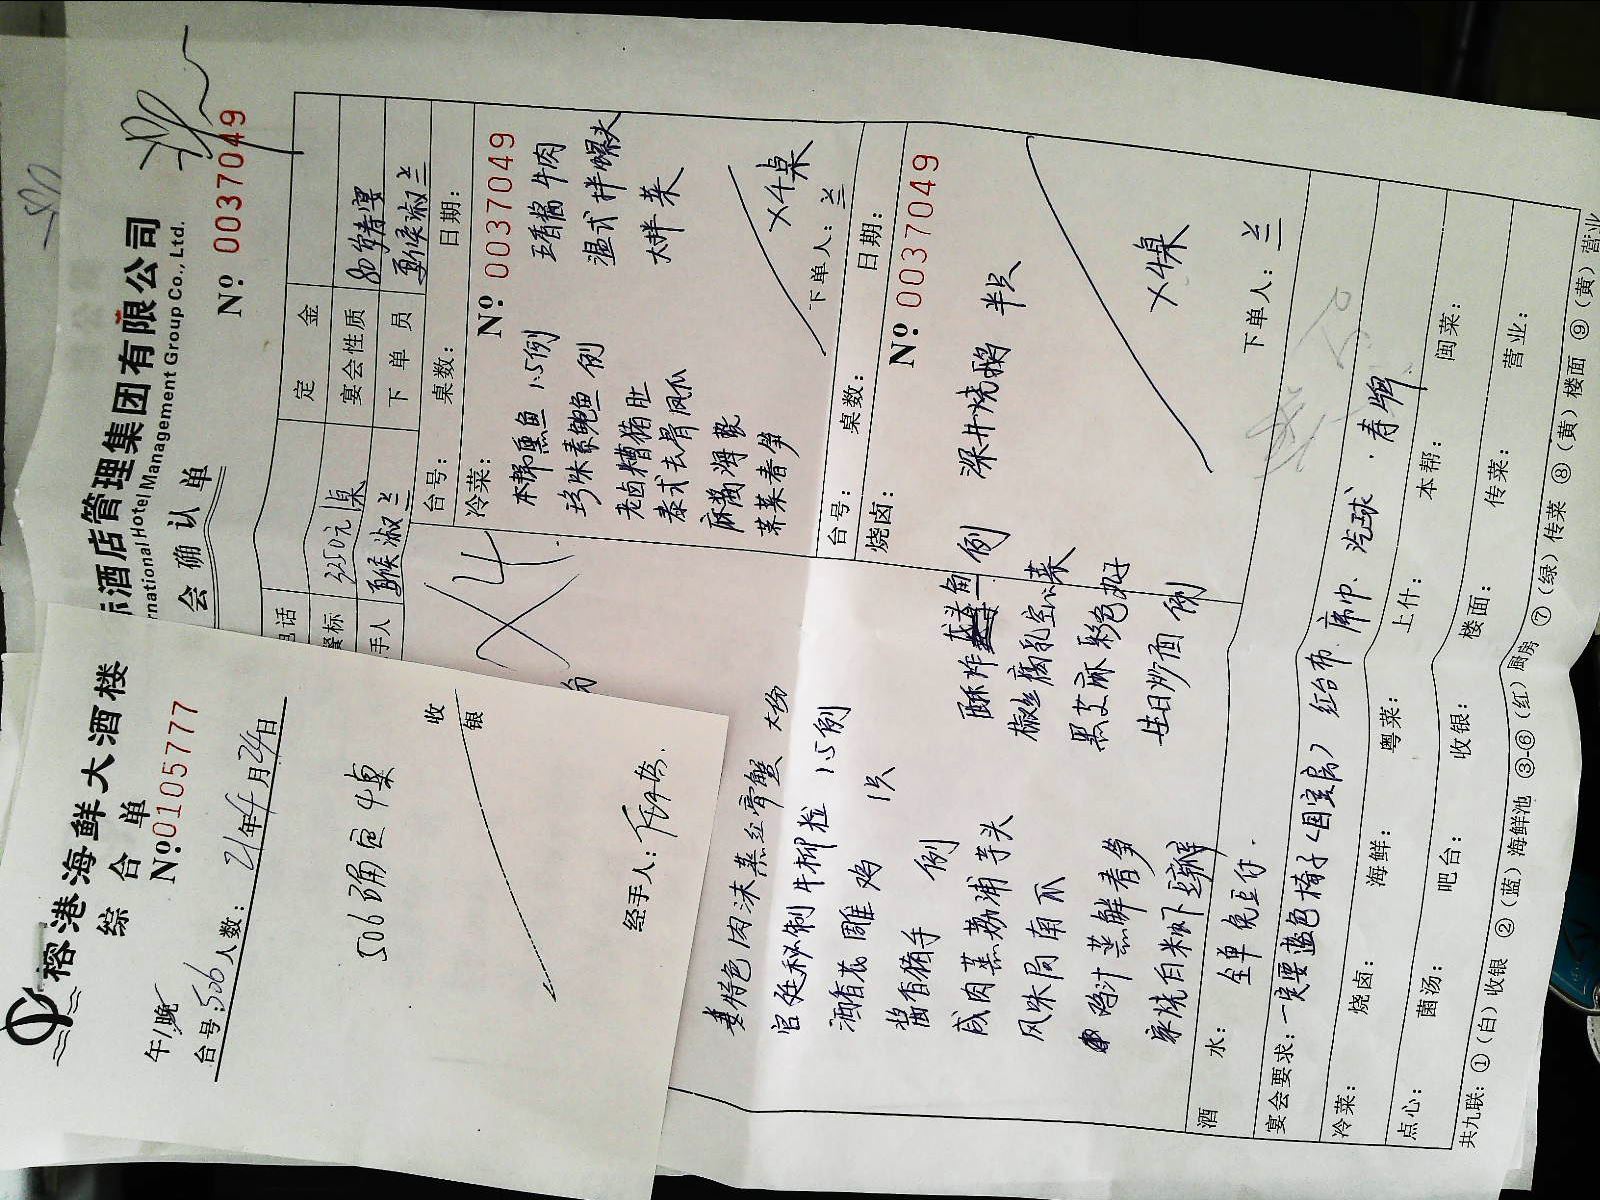 榕港海鲜大酒楼
综合单
午/晚
No:0105777
台号:506 人数: 21年4月24日
506确定4桌
收银
经手人:
际酒店管理集团有限公司
ernational Hotel Management Group Co., Ltd.
会确认单
No: 0037049
电话
定金
餐标 3350元/桌
宴会性质 80岁寿宴
手人 夏侯淑兰
下单员 夏侯淑兰
X4
台号: 桌数: 日期:
冷菜:
No: 0037049
本帮熏鱼 1.5例
五香酱牛肉
珍珠素鲍鱼 例
温式拌螺头
老卤糟猪肚
大拌菜
泰式去骨凤爪
麻酱海蜇
荠菜春笋
X4桌
下单人: 兰
台号: 桌数: 日期:
烧卤:
No: 0037049
深井烧鹅 半只
X4桌
下单人: 兰
份
姜特色肉沫蒸红膏蟹 大份
宫廷秘制牛柳粒 1.5例
酒香花雕鸡 1只
酱香猪手 例
咸肉蒸荔浦芋头
风味焗南瓜
鸡汁蒸鲜春笋
家烧白米虾土豆瓣
酥炸龙头鱼 例
椒丝腐乳空心菜
黑芝麻彩色球
生日炒面 例
酒水: 全单免豆仔.
宴会要求: 一定要蓝色椅子<国宝房> 红台布 席巾. 汽球. 寿牌
冷菜: 烧卤: 海鲜: 粤菜: 上什: 本帮: 闽菜:
点心: 菌汤: 吧台: 收银: 楼面: 传菜: 营业:
共九联: ①(白)收银 ②(蓝)海鲜池 ③-⑥(红)厨房 ⑦(绿)传菜 ⑧(黄)楼面 ⑨(黄)营业